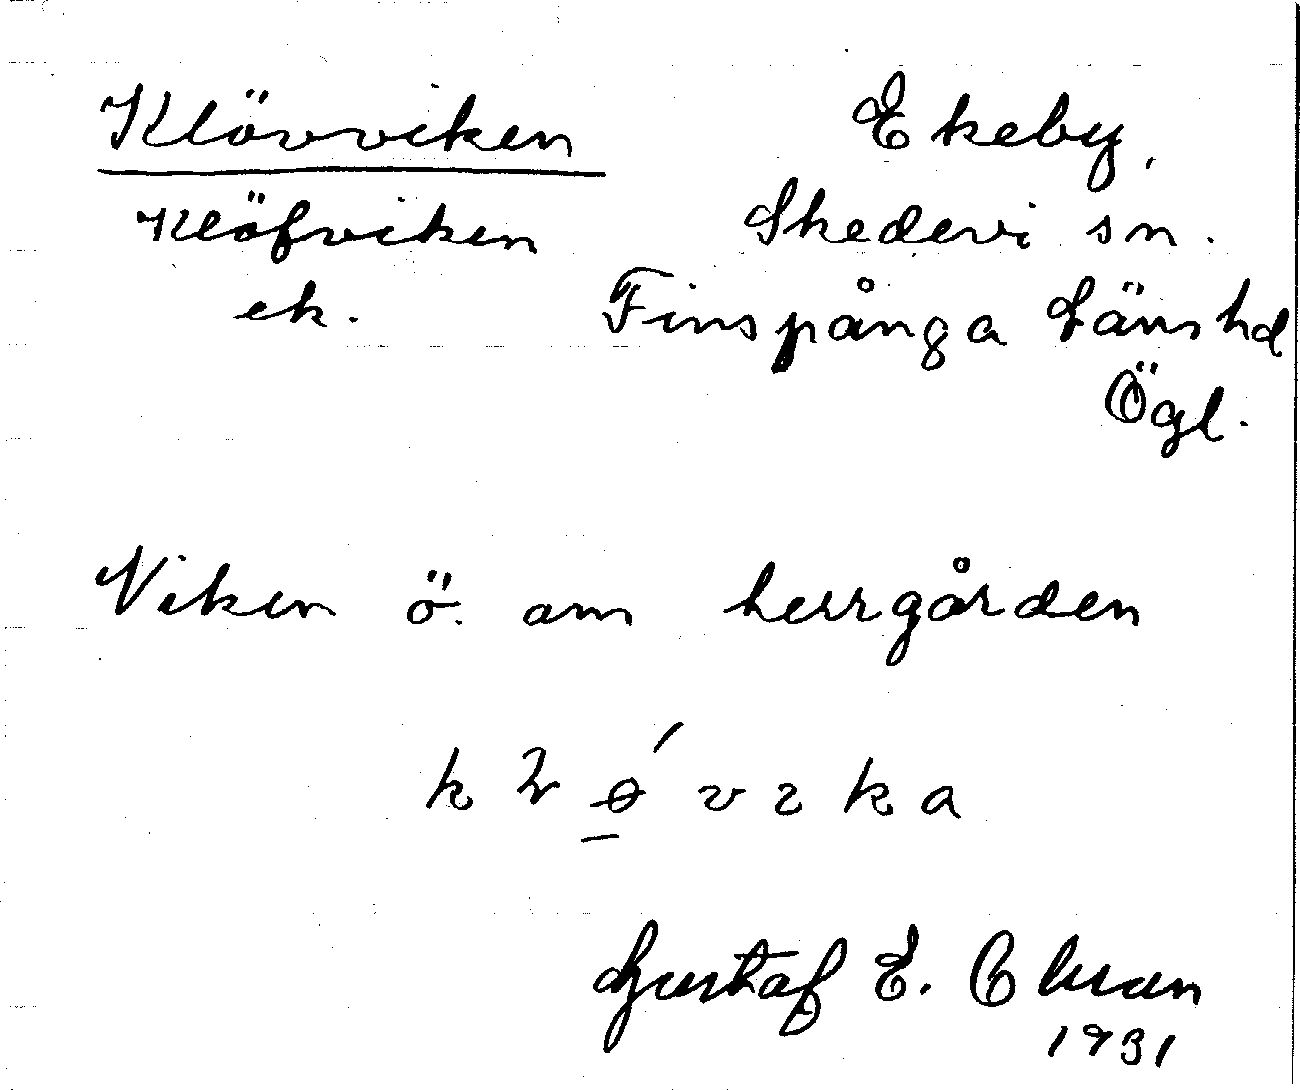 Klövviken
Klöfviken
ek.
Ekeby,
Skedevi sn.
Finspånga Länshd
Ögl.
Viken ö. om herrgården
Gustaf E.
1931